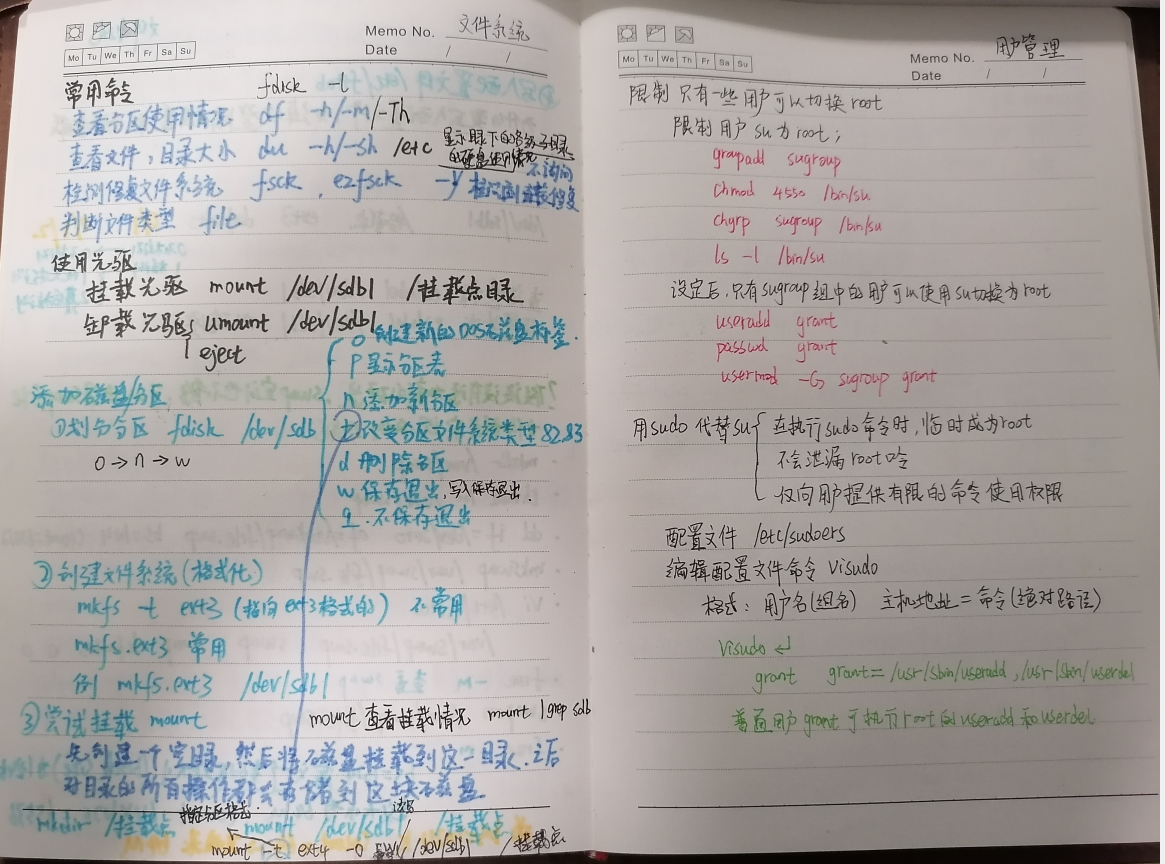 Memo No. 文件系统
Mo Tu We Th Fr Sa Su
Date / /
常用命令 fdisk -l
查看分区使用情况 df -h/-m/-Th
查看文件,目录大小 du -h/-sh /etc 显示眼下的各级子目录
的硬盘使用情况
不询问
检测修复文件系统 fsck . e2fsck -y 检测到直接修复
判断文件类型 file
使用光驱
挂载光驱 mount /dev/sdb1 /挂载点目录
卸载光驱 umount /dev/sdb1
eject
o 创建新的DOS磁盘标签.
p 显示分区表
添加磁盘/分区
n 添加新分区
①划分分区 fdisk /dev/sdb
t 改变分区文件系统类型 82.83
o→n→w
d 删除分区
w 保存退出,写入保存退出.
q. 不保存退出
②创建文件系统(格式化)
mkfs -t ext3 (指向ext3格式的) 不常用
mkfs.ext3 常用
例 mkfs.ext3 /dev/sdb1
③尝试挂载 mount mount 查看挂载情况 mount |grep sdb
先创建一个空目录,然后将磁盘挂载到这一目录.之后
对目录的所有操作都会存储到这块磁盘
指定分区格式. 读写
mkdir /挂载点 mount /dev/sdb1 /挂载点
mount -t ext4 -o /dev/sdb1 /挂载点
Memo No. 用户管理
Mo Tu We Th Fr Sa Su
Date / /
限制 只有一些用户可以切换root
限制用户su为root;
groupadd sugroup
chmod 4550 /bin/su
chgrp sugroup /bin/su
ls -l /bin/su
设定后,只有sugroup组中的用户可以使用su切换为root
useradd grant
passwd grant
usermod -G sugroup grant
用sudo 代替su{ 在执行sudo命令时,临时成为root
不会泄漏root口令
仅向用户提供有限的命令使用权限
配置文件 /etc/sudoers
编辑配置文件命令 visudo
格式: 用户名(组名) 主机地址=命令(绝对路径)
visudo ↵
grant grant=/usr/sbin/useradd,/usr/sbin/userdel
普通用户grant可执行root的useradd和userdel